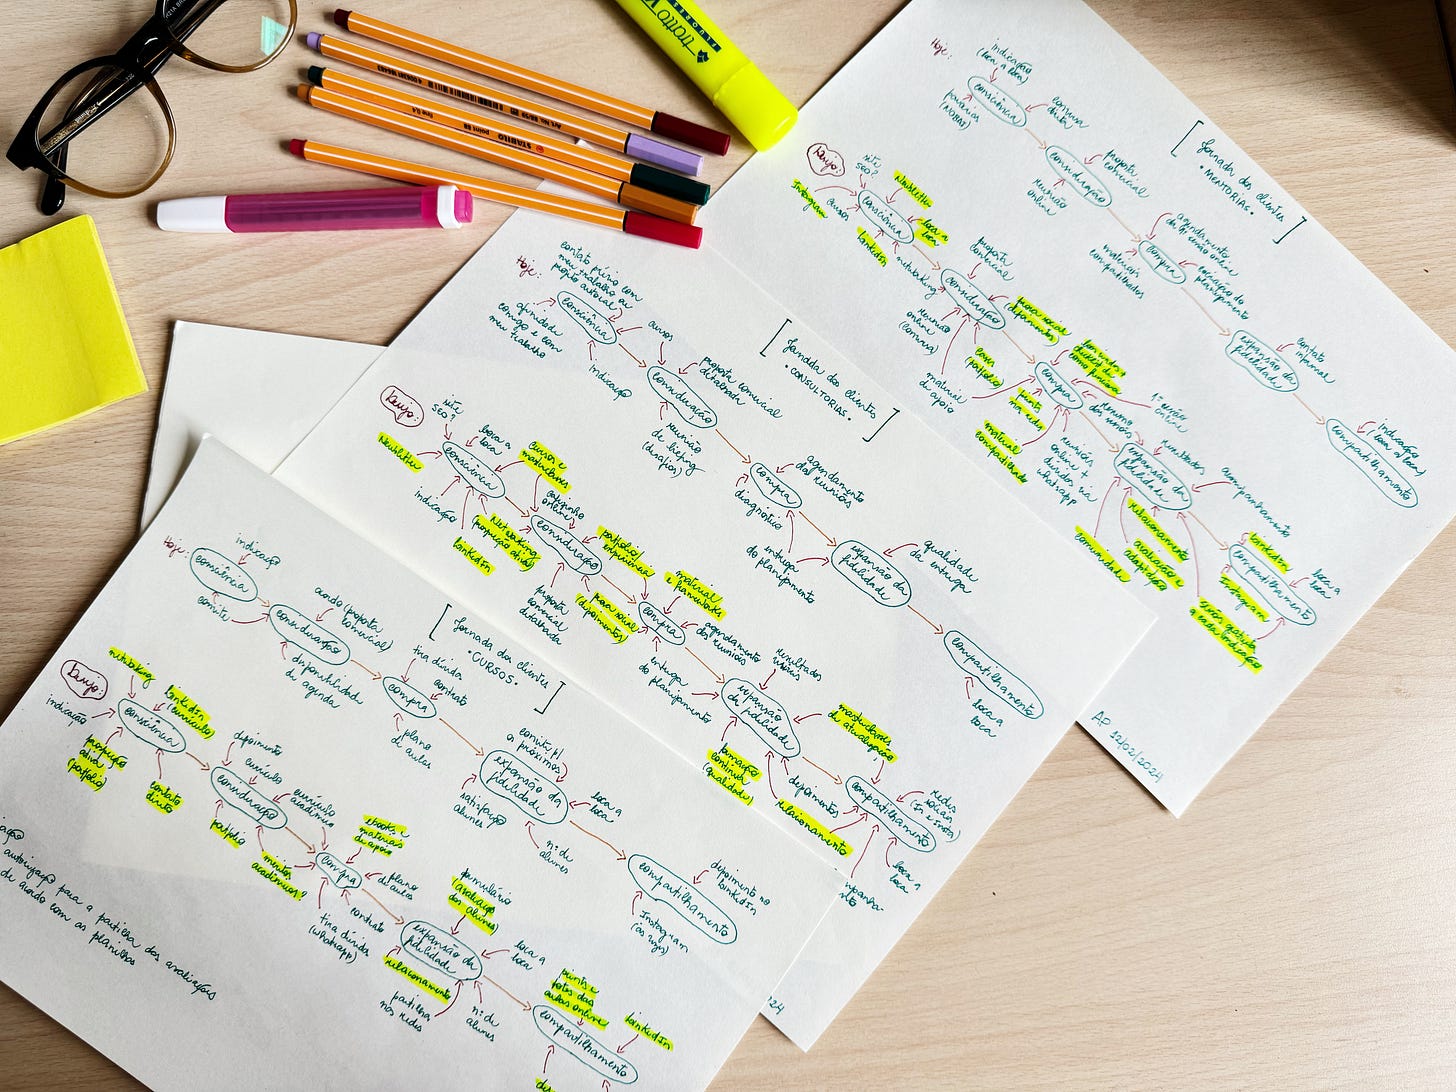 Hoje:
indicação
(boca a boca)
consciência
parcerias
(NOBAI)
conversa
direta
consideração
proposta
comercial
reunião
online
compra
agendamento
da 1ª sessão online
materiais
compartilhados
expansão da
fidelidade
contato
informal
compartilhamento
indicação
(boca a boca)
[Jornada dos clientes
• MENTORIAS •]
Desejo:
site
SEO?
Newsletter
Instagram
cursos
consciência
boca a
boca
LinkedIn
networking
consideração
proposta
comercial
reunião
online
(conversa)
prova social
(depoimentos)
cases
(portfólio)
material
de apoio
compra
1ª sessão
online
prints
nas redes
material
compartilhado
reuniões
online +
dúvidas via
whatsapp
expansão da
fidelidade
resultados
acompanhamento
relacionamento
avaliação e
adaptação
comunidade
compartilhamento
LinkedIn
boca a
boca
Instagram
AP
12/02/2024
Hoje:
contato prévio com
meu trabalho ou
projeto autoral
consciência
afinidade
comigo e com
meu trabalho
cursos
indicação
consideração
proposta comercial
detalhada
reunião
de briefing
(desafios)
compra
agendamento
das reuniões
diagnóstico
entrega
do planejamento
expansão da
fidelidade
qualidade
da entrega
compartilhamento
boca a
boca
[Jornada dos clientes
• CONSULTORIAS •]
Desejo:
site
SEO?
boca a
boca
Newsletter
consciência
cursos e
masterclasses
indicação
LinkedIn
Networking
(prospecção ativa)
consideração
cafezinho
online
portfólio/
experiência
proposta
comercial
detalhada
prova social
(depoimentos)
compra
material
e frameworks
agendamento
das reuniões
entrega
do planejamento
expansão da
fidelidade
resultados
masterclasses
de atualização
formação
contínua
(qualidade)
depoimentos
relacionamento
compartilhamento
redes
sociais
(in e insta)
boca a
boca
24
Hoje:
indicação
consciência
convite
consideração
acordo (proposta
comercial)
disponibilidade
de agenda
compra
tira dúvida
contrato
plano
de aulas
expansão da
fidelidade
convite p/
os próximos
boca a
boca
satisfação
alunes
nº de
alunes
compartilhamento
depoimento no
LinkedIn
Instagram
[Jornada dos clientes
• CURSOS •]
Desejo:
networking
LinkedIn
(currículo)
indicação
consciência
prospecção
ativa
(portfólio)
contato
direto
consideração
depoimento
currículo
currículo
acadêmico
portfólio
méritos
acadêmicos?
compra
ebooks e
materiais
de apoio
plano
de aulas
contrato
tira dúvidas
(whatsapp)
expansão da
fidelidade
formulário
(avaliação
dos alunes)
boca a
boca
relacionamento
partilha
nas redes
nº de
alunes
compartilhamento
prints e
fotos das
aulas online
LinkedIn
autorização para a partilha das avaliações
de acordo com as planilhas
STABILO
point 88
fine 0.4